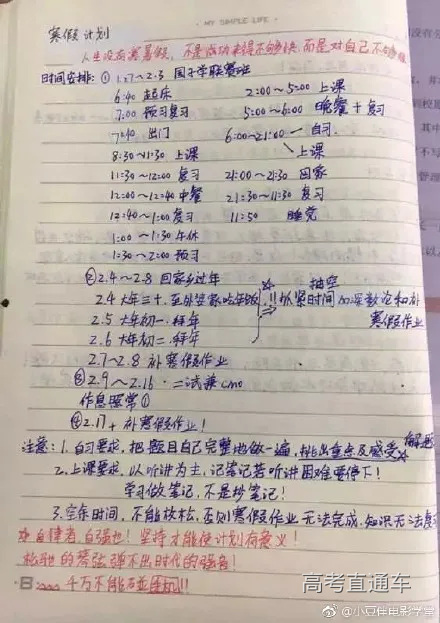 · MY SIMPLE LIFE ·
寒假计划
人生没有寒暑假，不是成功来得不够快，而是对自己不够狠
时间安排：① 1.27～2.3 国子学联赛班
6:40 起床 2:00～5:00 上课
7:00 预习复习 5:00～6:00 晚餐＋复习
7:40 出门 6:00～21:00 一自习
8:30～11:30 上课 上课
11:30～12:00 复习 21:00～21:30 回家
12:00～12:40 中餐 21:30～11:30 复习
12:40～1:00 复习 11:50 睡觉
1:00～1:30 午休
1:30～2:00 预习
② 2.4～2.8 回家乡过年 抽空
2.4 大年三十，至外婆家吃年饭 !! 抓紧时间 加深数论和补
2.5 大年初一，拜年 寒假作业
2.6 大年初二，拜年
2.7～2.8 补寒假作业
③ 2.9～2.16 · 二试兼CMO
作息照常①
④ 2.17+ 补寒假作业！
注意：1. 自习要求，把题目自己完整地做一遍，挑出重点及感受 解题
2. 上课要求，以听讲为主，记笔记若听讲困难要停下！
学习做笔记，不是抄笔记！
3. 空余时间，不能放松，否则寒假作业无法完成，知识无法复
自律者，自强也！坚持才能使计划有意义！
松驰的琴弦，弹不出时代的强音！
千万不能碰手机!!
高考直通车
@小豆伴电影学堂